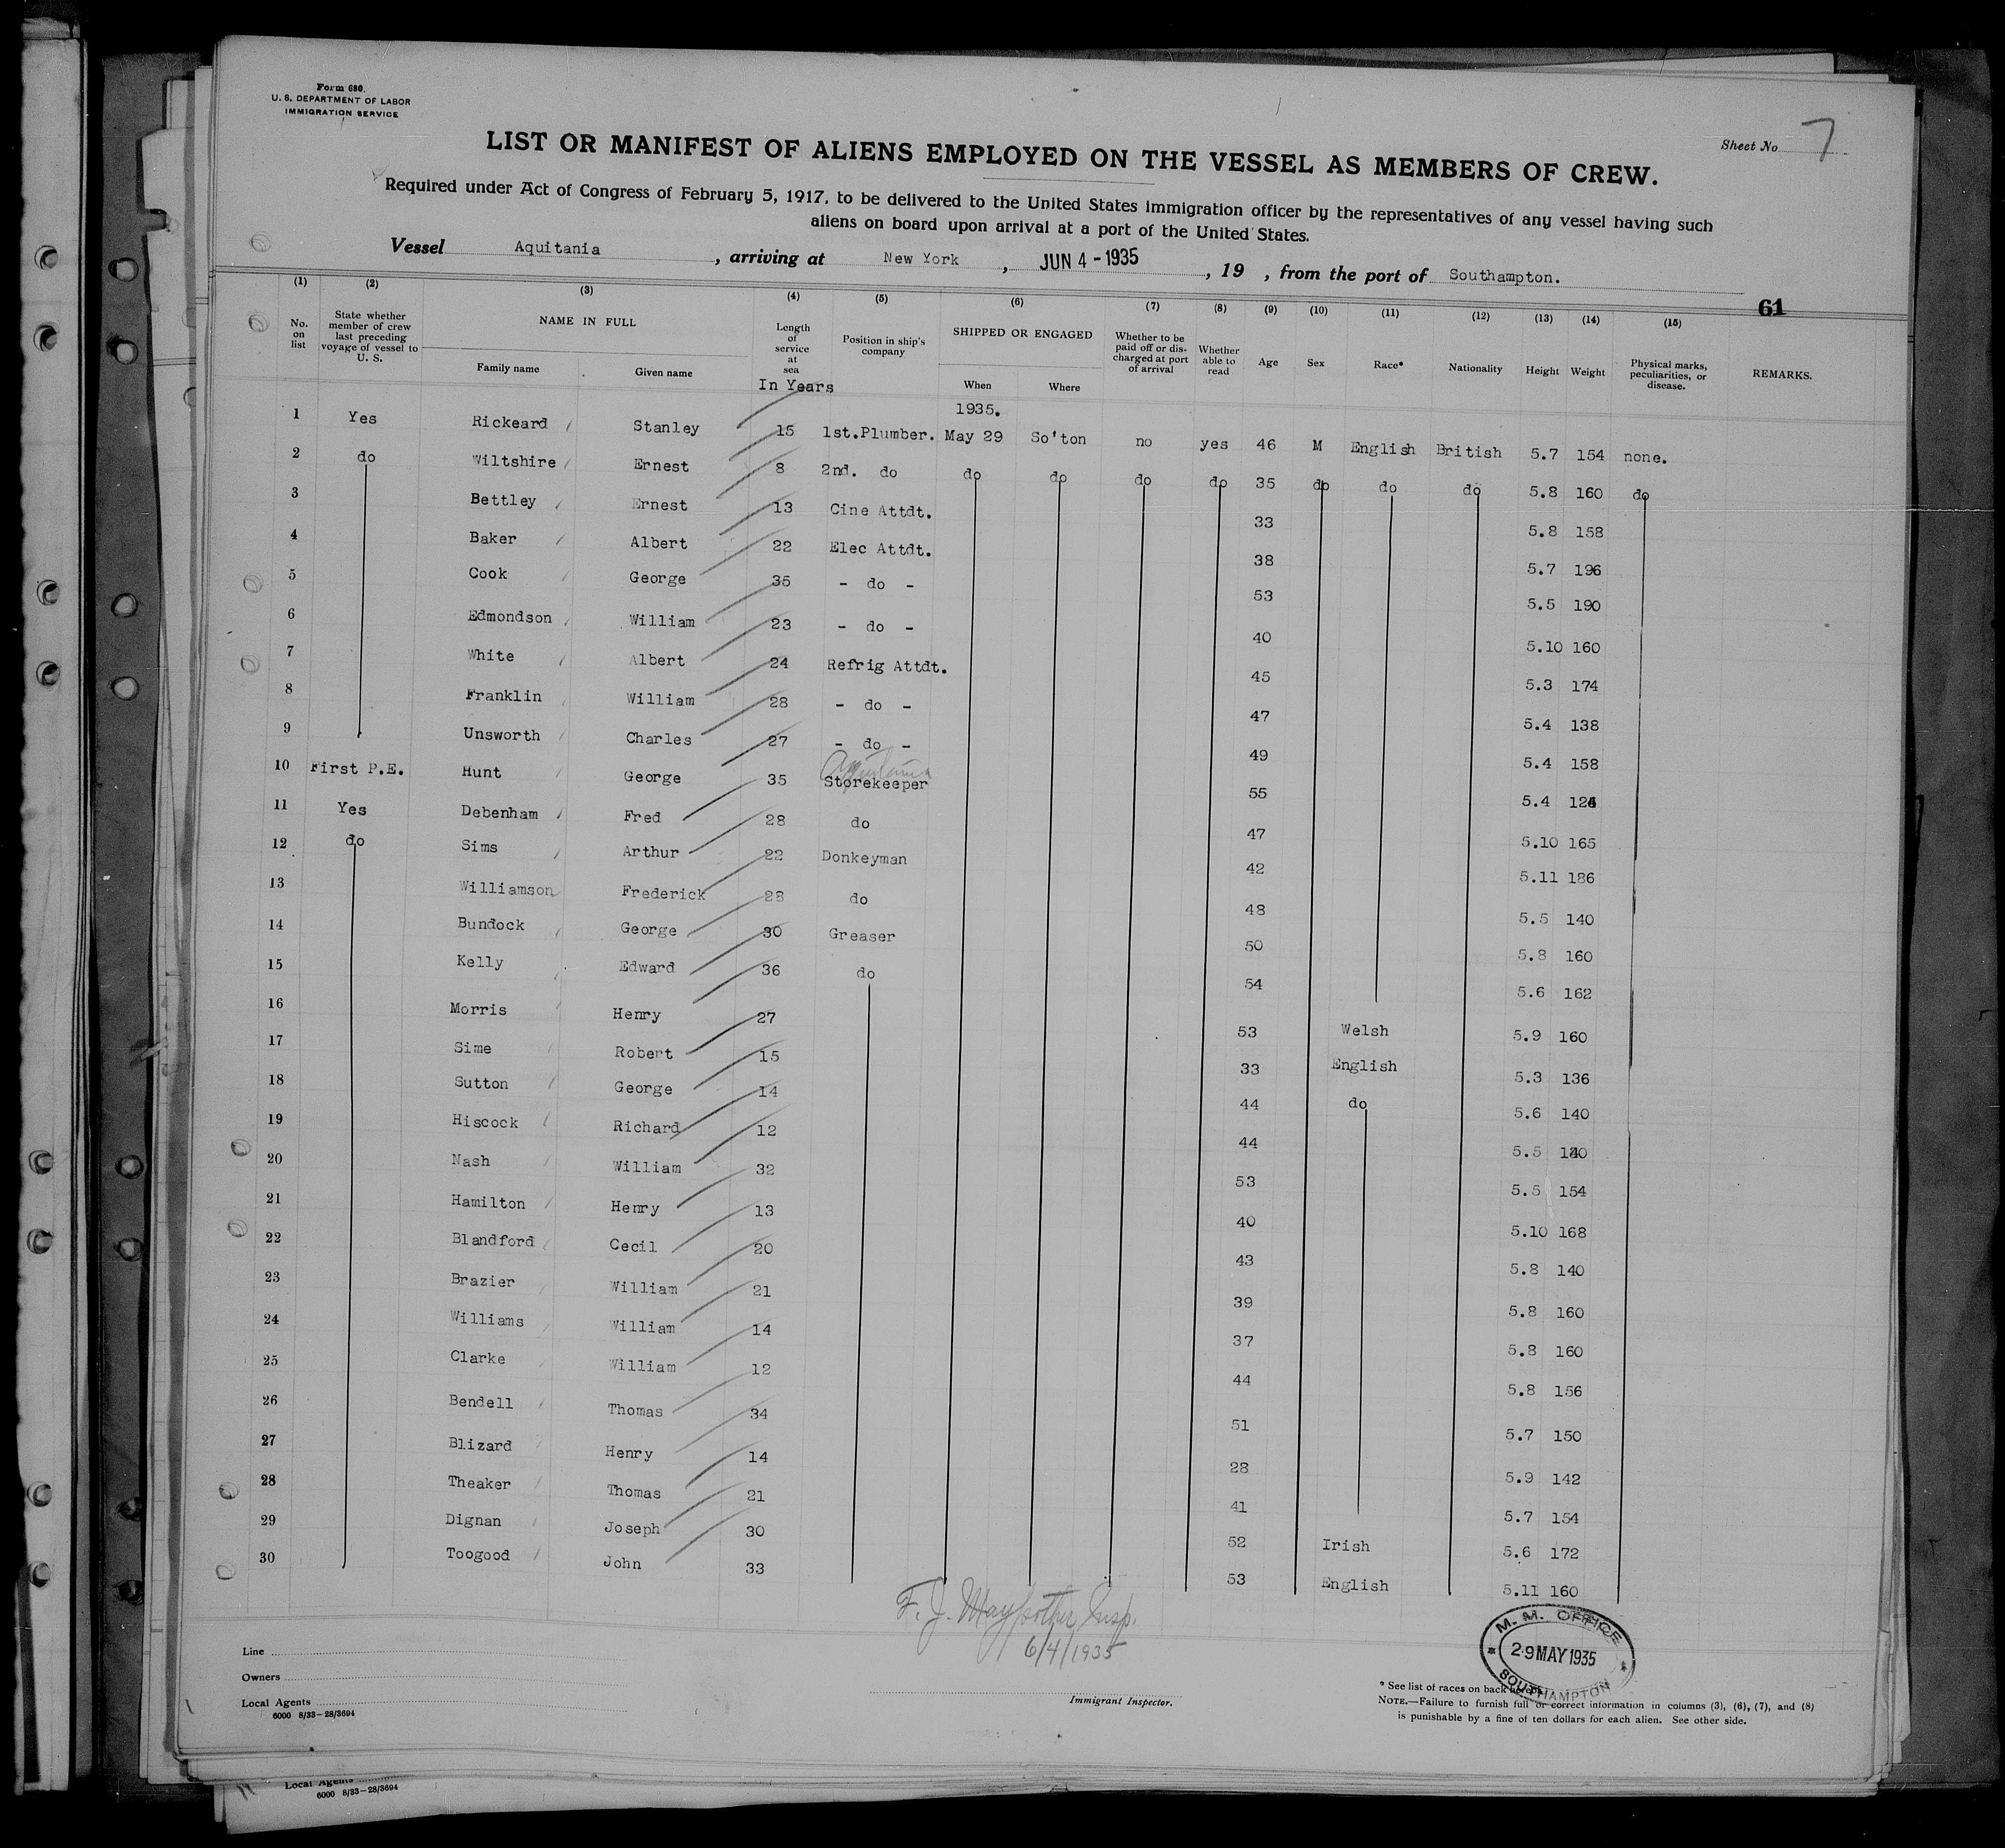 Form 680.
U. S. DEPARTMENT OF LABOR
IMMIGRATION SERVICE
Sheet No. 7
LIST OR MANIFEST OF ALIENS EMPLOYED ON THE VESSEL AS MEMBERS OF CREW.
Required under Act of Congress of February 5, 1917, to be delivered to the United States immigration officer by the representatives of any vessel having such
aliens on board upon arrival at a port of the United States.
Vessel Aquitania, arriving at New York, JUN 4 - 1935, 19 , from the port of Southampton.
61
(1) (2) (3) (4) (5) (6) (7) (8) (9) (10) (11) (12) (13) (14) (15)
No. on list | State whether member of crew last preceding voyage of vessel to U. S. | NAME IN FULL | Length of service at sea | Position in ship's company | SHIPPED OR ENGAGED | Whether to be paid off or discharged at port of arrival | Whether able to read | Age | Sex | Race* | Nationality | Height | Weight | Physical marks, peculiarities, or disease. | REMARKS.
Family name | Given name | In Years | When | Where
1935.
1 Yes Rickeard Stanley 15 1st.Plumber. May 29 So'ton no yes 46 M English British 5.7 154 none.
2 do Wiltshire Ernest 8 2nd. do do do do do 35 do do do 5.8 160 do
3 Bettley Ernest 13 Cine Attdt. 33 5.8 158
4 Baker Albert 22 Elec Attdt. 38 5.7 196
5 Cook George 35 - do - 53 5.5 190
6 Edmondson William 23 - do - 40 5.10 160
7 White Albert 24 Refrig Attdt. 45 5.3 174
8 Franklin William 28 - do - 47 5.4 138
9 Unsworth Charles 27 - do - 49 5.4 158
Aquitania
10 First P.E. Hunt George 35 Storekeeper 55 5.4
11 Yes Debenham Fred 28 do 47 5.10 165
12 do Sims Arthur 22 Donkeyman 42 5.11 186
13 Williamson Frederick 28 do 48 5.5 140
14 Bundock George 30 Greaser 50 5.8 160
15 Kelly Edward 36 do 54 5.6 162
16 Morris Henry 27 53 Welsh 5.9 160
17 Sime Robert 15 33 English 5.3 136
18 Sutton George 14 44 do 5.6 140
19 Hiscock Richard 12 44 5.5
20 Nash William 32 53 5.5 154
21 Hamilton Henry 13 40 5.10 168
22 Blandford Cecil 20 43 5.8 140
23 Brazier William 21 39 5.8 160
24 Williams William 14 37 5.8 160
25 Clarke William 12 44 5.8 156
26 Bendell Thomas 34 51 5.7 150
27 Blizard Henry 14 28 5.9 142
28 Theaker Thomas 21 41 5.7 154
29 Dignan Joseph 30 52 Irish 5.6 172
30 Toogood John 33 53 English 5.11 160
F. J. Insp.
6/4/1935
Immigrant Inspector.
M. M. OFFICE
29 MAY 1935
SOUTHAMPTON
Line
Owners
Local Agents
6000 8/33-28/3694
* See list of races on back hereof.
NOTE.—Failure to furnish full or correct information in columns (3), (6), (7), and (8)
is punishable by a fine of ten dollars for each alien. See other side.
Local Agents
6000 8/33-28/3694